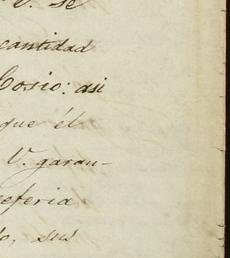 V. se
cantidad
Cosio: asi
que él
V. garan-
referia
sus